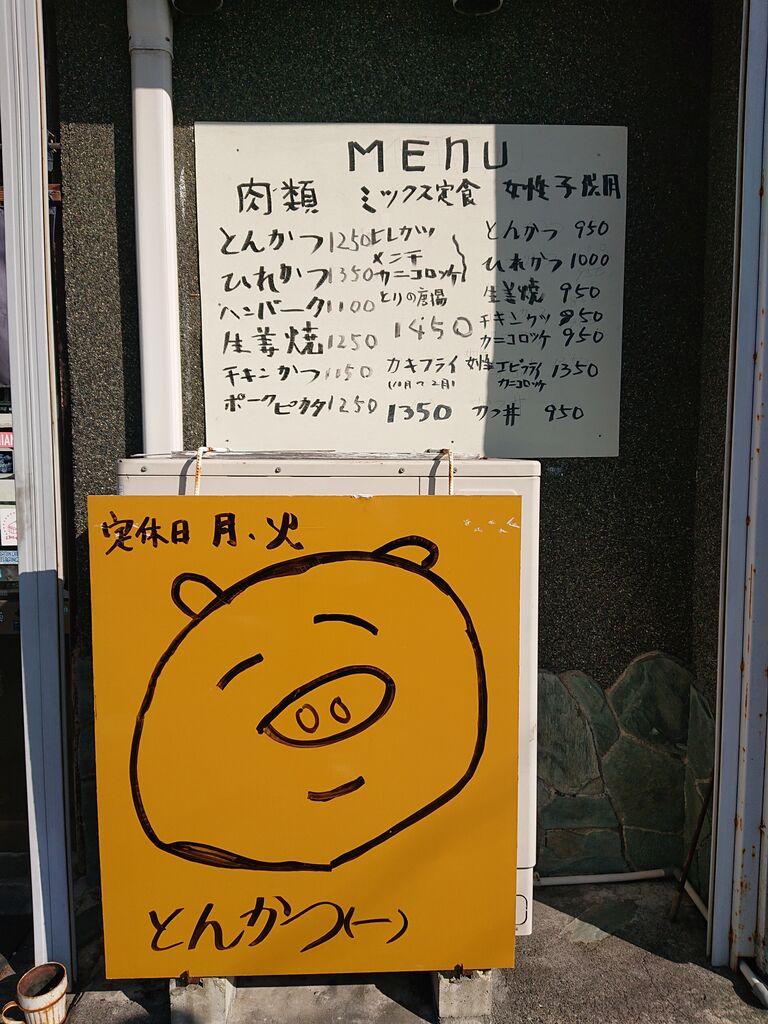 MENU
肉類
とんかつ 1250
ひれかつ 1350
ハンバーク 1100
生姜焼 1250
チキンかつ 1150
ポークピカタ 1250
ミックス定食
ヒレカツ
メンチ
カニコロッケ
とりの唐揚
1450
カキフライ
(10月〜2月)
1350
女性子供用
とんかつ 950
ひれかつ 1000
生姜焼 950
チキンカツ 850
カニコロッケ 950
エビフライ 1350
カニコロッケ
カツ丼 950
定休日 月、火
とんかつ(一)